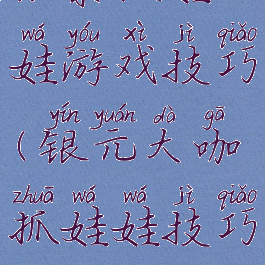 wá yóu xì jì qiǎo
娃游戏技巧
yín yuán dà gā
(银元大咖
zhuā wá wá jì qiǎo
抓娃娃技巧